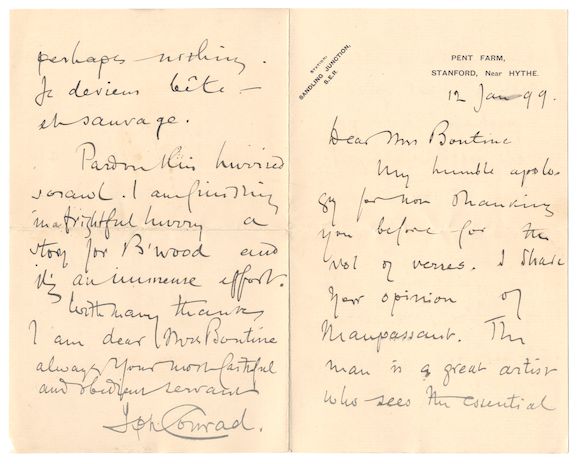 STATION:
SANDLING JUNCTION,
S.E.R.
PENT FARM,
STANFORD, Near HYTHE.
12 Jan 99.
Dear Mrs Bontine
My humble apolo-
gy for non thanking
you before for the
vol of verses. I share
your opinion of
Maupassant. The
man is a great artist
who sees the essential
perhaps nothing.
Je deviens bête –
et sauvage.
Pardon this hurried
scrawl. I am finishing
in a frightful hurry a
story for B'wood and
it's an immense effort.
With many thanks
I am dear Mrs Bontine
always Your most faithful
and obedient servant
Jph Conrad.